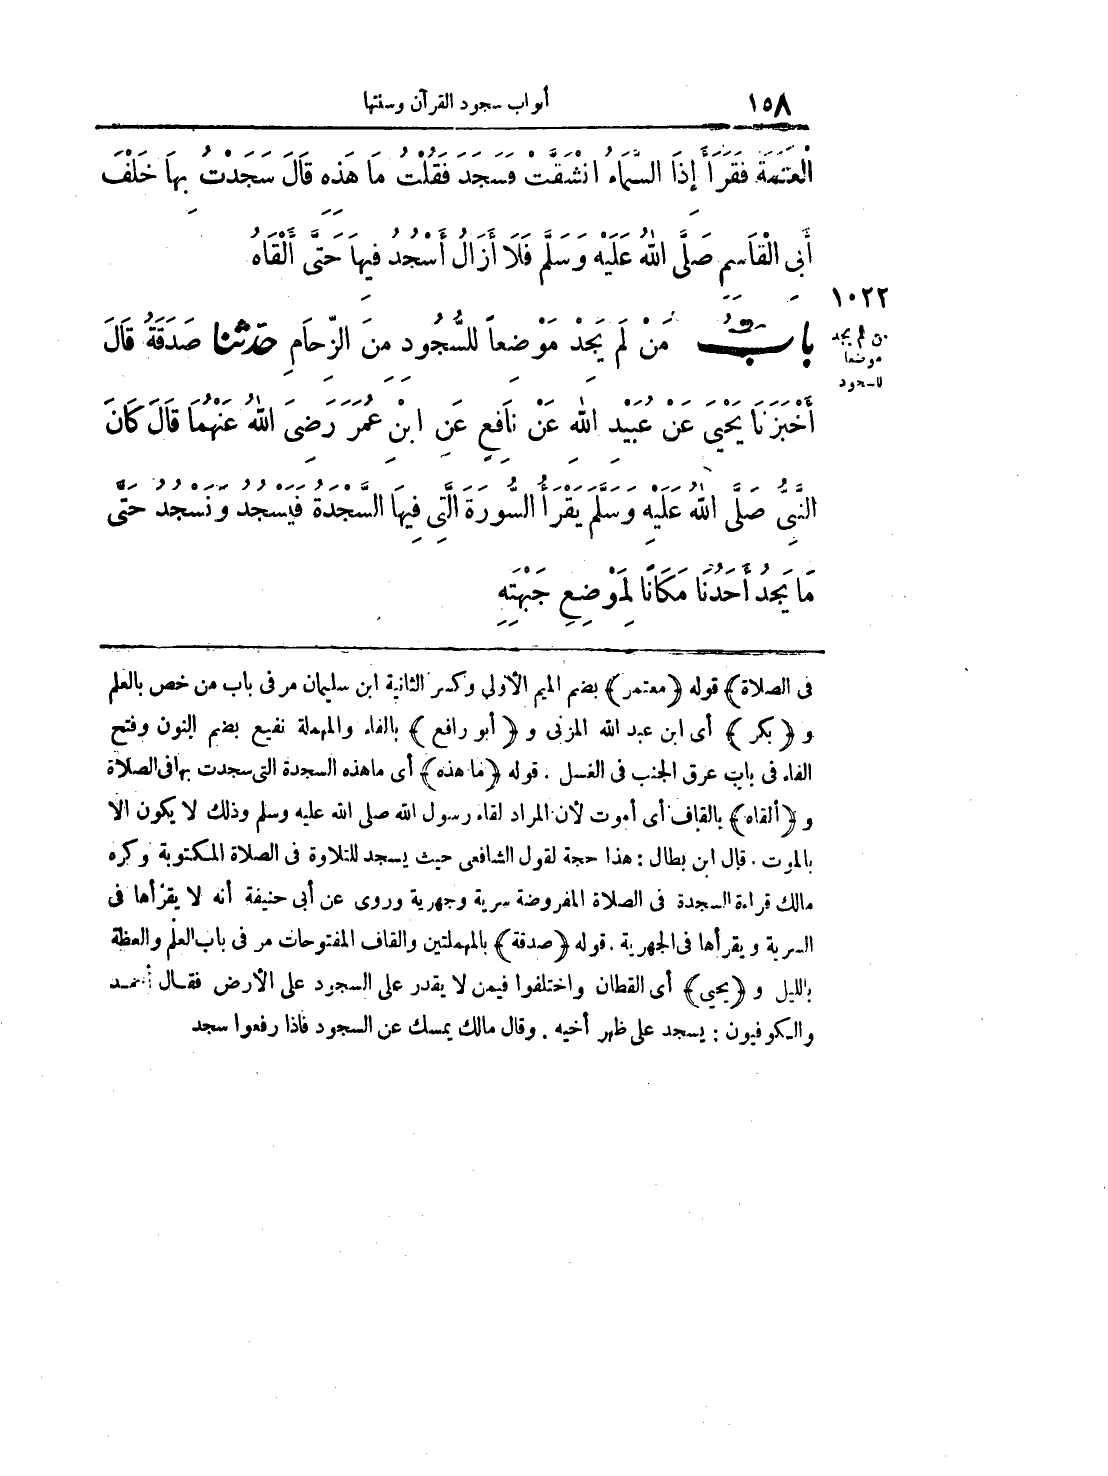 ١٥٨ أبواب سجود القرآن وسنتها
الْعَتَمَةَ فَقَرَأَ إِذَا السَّمَاءُ انْشَقَّتْ فَسَجَدَ فَقُلْتُ مَا هَذِهِ قَالَ سَجَدْتُ بِهَا خَلْفَ
أَبِي الْقَاسِمِ صَلَّى اللهُ عَلَيْهِ وَسَلَّمَ فَلَا أَزَالُ أَسْجُدُ فِيهَا حَتَّى أَلْقَاهُ
١٠٢٢
من لم يجد
موضعا
للسجود
بابُ مَنْ لَمْ يَجِدْ مَوْضِعاً لِلسُّجُودِ مِنَ الزِّحَامِ حَدَّثَنَا صَدَقَةُ قَالَ
أَخْبَرَنَا يَحْيَى عَنْ عُبَيْدِ اللهِ عَنْ نَافِعٍ عَنِ ابْنِ عُمَرَ رَضِيَ اللهُ عَنْهُمَا قَالَ كَانَ
النَّبِيُّ صَلَّى اللهُ عَلَيْهِ وَسَلَّمَ يَقْرَأُ السُّورَةَ الَّتِي فِيهَا السَّجْدَةُ فَيَسْجُدُ وَنَسْجُدُ حَتَّى
مَا يَجِدُ أَحَدُنَا مَكَانًا لِمَوْضِعِ جَبْهَتِهِ
فى الصلاة﴾ قوله ﴿معتمر﴾ بضم الميم الأولى وكسر الثانية ابن سليمان مر فى باب من خص بالعلم
و ﴿بكر﴾ أى ابن عبد الله المزنى و ﴿أبو رافع﴾ بالفاء والمهملة نفيع بضم النون وفتح
الفاء فى باب عرق الجنب فى الغسل . قوله ﴿ما هذه﴾ أى ماهذه السجدة التى سجدت بها فى الصلاة
و ﴿ألقاه﴾ بالقاف أى أموت لأن المراد لقاء رسول الله صلى الله عليه وسلم وذلك لا يكون الا
بالموت . قال ابن بطال : هذا حجة لقول الشافعى حيث يسجد للتلاوة فى الصلاة المكتوبة وكره
مالك قراءة السجدة فى الصلاة المفروضة سرية وجهرية وروى عن أبى حنيفة أنه لا يقرأها فى
السرية ويقرأها فى الجهرية . قوله ﴿صدقة﴾ بالمهملتين والقاف المفتوحات مر فى باب العلم والعظة
بالليل و ﴿يحيى﴾ أى القطان واختلفوا فيمن لا يقدر على السجود على الأرض فقال أحمد
والكوفيون : يسجد على ظهر أخيه . وقال مالك يمسك عن السجود فاذا رفعوا سجد